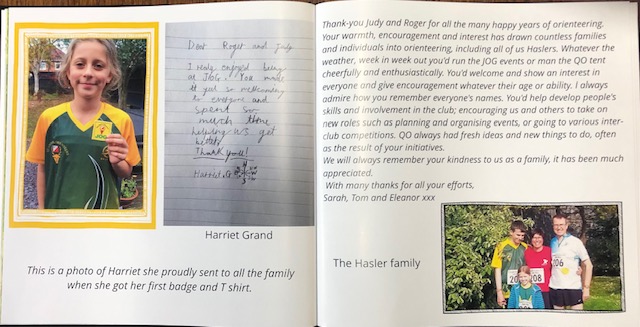 Dear Roger and Judy
I really enjoyed being
at JOG. You made
it all so welcoming
to everyone and
spent so
much time
helping us get
better.
Thankyou!
Harriet.G
Harriet Grand
This is a photo of Harriet she proudly sent to all the family
when she got her first badge and T shirt.
Thank-you Judy and Roger for all the many happy years of orienteering.
Your warmth, encouragement and interest has drawn countless families
and individuals into orienteering, including all of us Haslers. Whatever the
weather, week in week out you'd run the JOG events or man the QO tent
cheerfully and enthusiastically. You'd welcome and show an interest in
everyone and give encouragement whatever their age or ability. I always
admire how you remember everyone's names. You'd help develop people's
skills and involvement in the club; encouraging us and others to take on
new roles such as planning and organising events, or going to various inter-
club competitions. QO always had fresh ideas and new things to do, often
as the result of your initiatives.
We will always remember your kindness to us as a family, it has been much
appreciated.
With many thanks for all your efforts,
Sarah, Tom and Eleanor xxx
The Hasler family
208
206